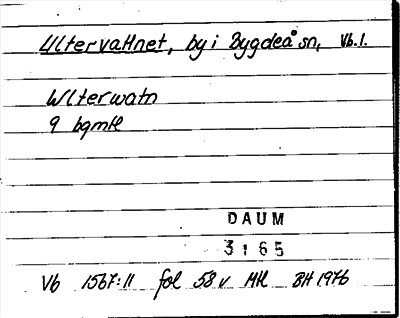 Ultervattnet, by i Bygdeå sn, Vb. l.
Wlterwatn
9 bgmtl
DAUM
3165
Vb 1567:11 fol 58 v Mtl BH 1976